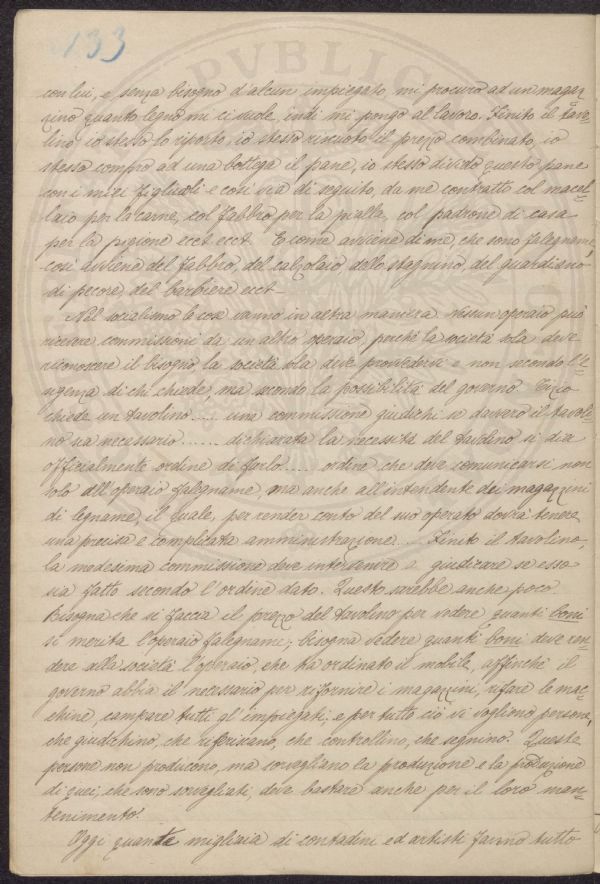 133
con lui, e senza bisogno d'alcun impiegato, mi procuro ad un magaz
zino quanto legno mi ci vuole, indi mi pongo al lavoro. Finito il tavo=
lino, io stesso lo riporto, io stesso riscuoto il prezzo combinato, io
stesso compro ad una bottega il pane, io stesso divido questo pane
con i miei figliuoli e così via di seguito, da me contratto col macel=
laio per la carne, col fabbro per la pialla, col padrone di casa
per la pigione ecct. ecct. E come avviene di me, che sono falegname,
così avviene del fabbro, del calzolaio dello stagnino, del guardiano
di pecore, del barbiere ecct.
Nel socialismo le cose vanno in altra maniera. Nessun operaio può
ricevere commissioni da un altro operaio, perché la società sola deve
riconoscere il bisogno, la società sola deve provvedervi e non secondo l'e=
sigenza di chi chiede, ma secondo la possibilità del governo. Tizio
chiede un tavolino..... una commissione giudichi se davvero il tavoli=
no sia necessario...... dichiarata la necessità del tavolino si dia
officialmente ordine di farlo..... ordine che deve comunicarsi non
solo all'operaio falegname, ma anche all'intendente dei magazzini
di legname, il quale, per render conto del suo operato dovrà tenere
una precisa e complicata amministrazione.... Finito il tavolino,
la medesima commissione deve intervenire a giudicare se esso
sia fatto secondo l'ordine dato. Questo sarebbe anche poco.
Bisogna che si faccia il prezzo del tavolino per vedere quanti boni
si merita l'operaio falegname; bisogna vedere quanti boni deve ren=
dere alla società l'operaio, che ha ordinato il mobile, affinché il
governo abbia il necessario per rifornire i magazzini, rifare le mac=
chine, campare tutti gl'impiegati; e per tutto ciò si vogliono persone,
che giudichino, che riferiscano, che controllino, che segnino. Queste
persone non producono, ma sorvegliano la produzione e la produzione
di quei, che sono sorvegliati, deve bastare anche per il loro man=
tenimento.
Oggi quante migliaia di contadini ed artisti fanno tutto